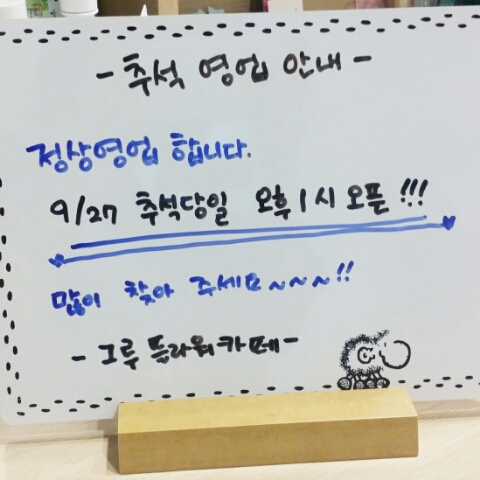 - 추석 영업 안내 -
정상영업 합니다.
9/27 추석당일 오후 1시 오픈 !!!
많이 찾아 주세요~~~!!
- 그루 플라워카페 -